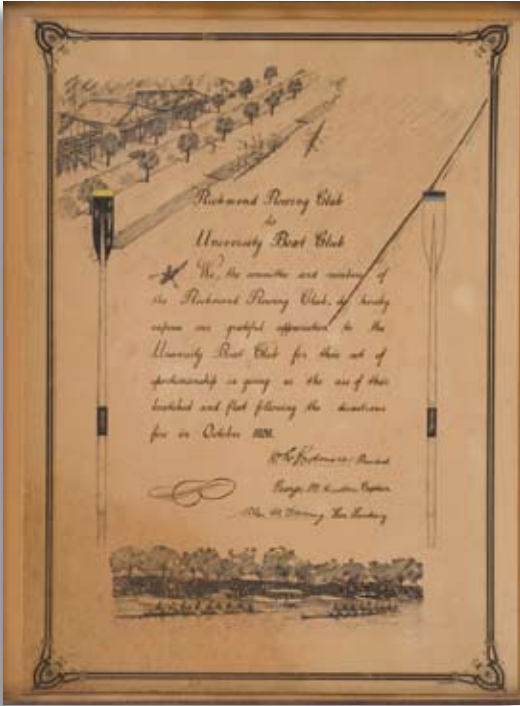 Richmond Rowing Club
to
University Boat Club
We, the committee and members of
the Richmond Rowing Club, do hereby
express our grateful appreciation to the
University Boat Club for their act of
sportsmanship in giving us the use of their
boatshed and fleet following the disastrous
fire in October
President
George Captain
Hon. Secretary